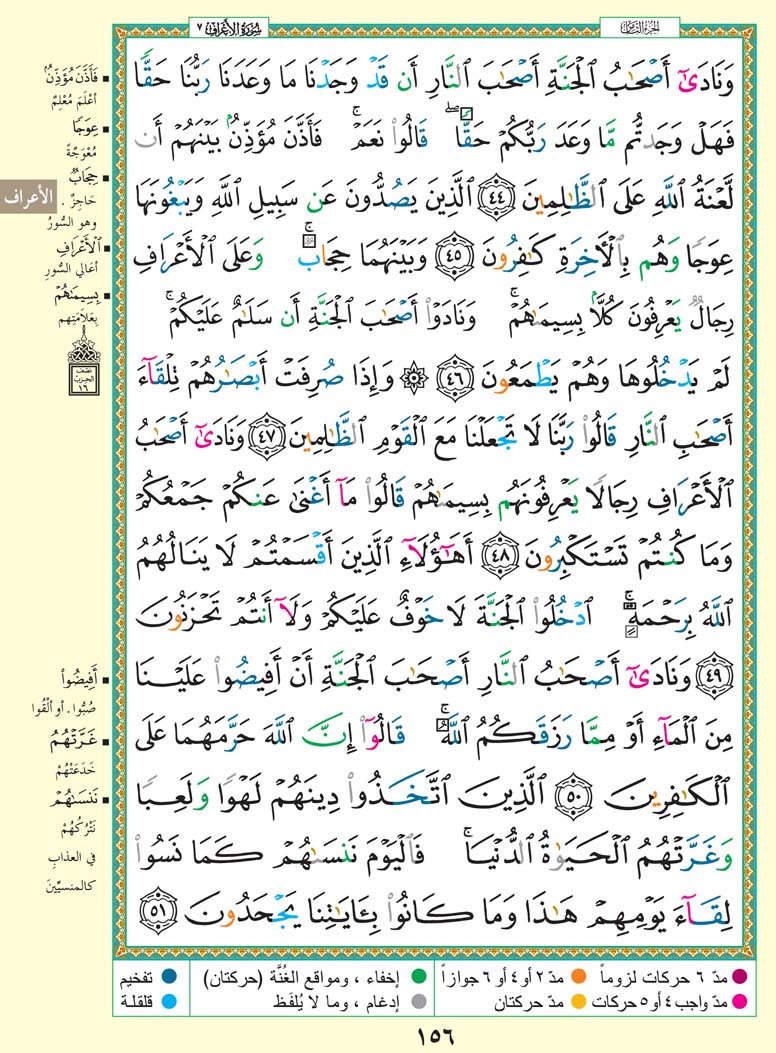 سُورَةُ الأَعْرَاف ٧
الجزء الثامن
وَنَادَىٰٓ أَصْحَٰبُ ٱلْجَنَّةِ أَصْحَٰبَ ٱلنَّارِ أَن قَدْ وَجَدْنَا مَا وَعَدَنَا رَبُّنَا حَقًّا
فَهَلْ وَجَدتُّم مَّا وَعَدَ رَبُّكُمْ حَقًّا ۖ قَالُوا۟ نَعَمْ ۚ فَأَذَّنَ مُؤَذِّنٌۢ بَيْنَهُمْ أَن
لَّعْنَةُ ٱللَّهِ عَلَى ٱلظَّٰلِمِينَ ٤٤ ٱلَّذِينَ يَصُدُّونَ عَن سَبِيلِ ٱللَّهِ وَيَبْغُونَهَا
عِوَجًا وَهُم بِٱلْءَاخِرَةِ كَٰفِرُونَ ٤٥ وَبَيْنَهُمَا حِجَابٌ ۚ وَعَلَى ٱلْأَعْرَافِ
رِجَالٌ يَعْرِفُونَ كُلًّۢا بِسِيمَىٰهُمْ ۚ وَنَادَوْا۟ أَصْحَٰبَ ٱلْجَنَّةِ أَن سَلَٰمٌ عَلَيْكُمْ ۚ
لَمْ يَدْخُلُوهَا وَهُمْ يَطْمَعُونَ ٤٦ ۞ وَإِذَا صُرِفَتْ أَبْصَٰرُهُمْ تِلْقَآءَ
أَصْحَٰبِ ٱلنَّارِ قَالُوا۟ رَبَّنَا لَا تَجْعَلْنَا مَعَ ٱلْقَوْمِ ٱلظَّٰلِمِينَ ٤٧ وَنَادَىٰٓ أَصْحَٰبُ
ٱلْأَعْرَافِ رِجَالًا يَعْرِفُونَهُم بِسِيمَىٰهُمْ قَالُوا۟ مَآ أَغْنَىٰ عَنكُمْ جَمْعُكُمْ
وَمَا كُنتُمْ تَسْتَكْبِرُونَ ٤٨ أَهَٰٓؤُلَآءِ ٱلَّذِينَ أَقْسَمْتُمْ لَا يَنَالُهُمُ
ٱللَّهُ بِرَحْمَةٍ ۚ ٱدْخُلُوا۟ ٱلْجَنَّةَ لَا خَوْفٌ عَلَيْكُمْ وَلَآ أَنتُمْ تَحْزَنُونَ
٤٩ وَنَادَىٰٓ أَصْحَٰبُ ٱلنَّارِ أَصْحَٰبَ ٱلْجَنَّةِ أَنْ أَفِيضُوا۟ عَلَيْنَا
مِنَ ٱلْمَآءِ أَوْ مِمَّا رَزَقَكُمُ ٱللَّهُ ۚ قَالُوٓا۟ إِنَّ ٱللَّهَ حَرَّمَهُمَا عَلَى
ٱلْكَٰفِرِينَ ٥٠ ٱلَّذِينَ ٱتَّخَذُوا۟ دِينَهُمْ لَهْوًا وَلَعِبًا
وَغَرَّتْهُمُ ٱلْحَيَوٰةُ ٱلدُّنْيَا ۚ فَٱلْيَوْمَ نَنسَىٰهُمْ كَمَا نَسُوا۟
لِقَآءَ يَوْمِهِمْ هَٰذَا وَمَا كَانُوا۟ بِـَٔايَٰتِنَا يَجْحَدُونَ ٥١
الأعراف
▪ فَأَذَّنَ مُؤَذِّنٌۢ
أعْلَمَ مُعْلِمٌ
▪ عِوَجًا
مُعْوَجَّةً
▪ حِجَابٌ
حَاجِزٌ .
وهو السُّورُ
▪ ٱلْأَعْرَافِ
أعَالي السُّورِ
▪ بِسِيمَىٰهُمْ
بِعَلَامَتِهم
نصف
الحزب
١٦
▪ أَفِيضُوا۟
صُبُّوا. أو ألْقُوا
▪ غَرَّتْهُمُ
خَدَعَتْهُمْ
▪ نَنسَىٰهُمْ
نَتْرُكُهُمْ
في العذابِ
كالمنسيِّينَ
مدّ ٦ حركات لزوماً ● مدّ ٢ أو ٤ أو ٦ جوازاً
مدّ واجب ٤ أو ٥ حركات ● مدّ حركتان
إخفاء ، ومواقع الغُنَّة (حركتان)
إدغام ، وما لا يُلفَظ
تفخيم
قلقلة
١٥٦